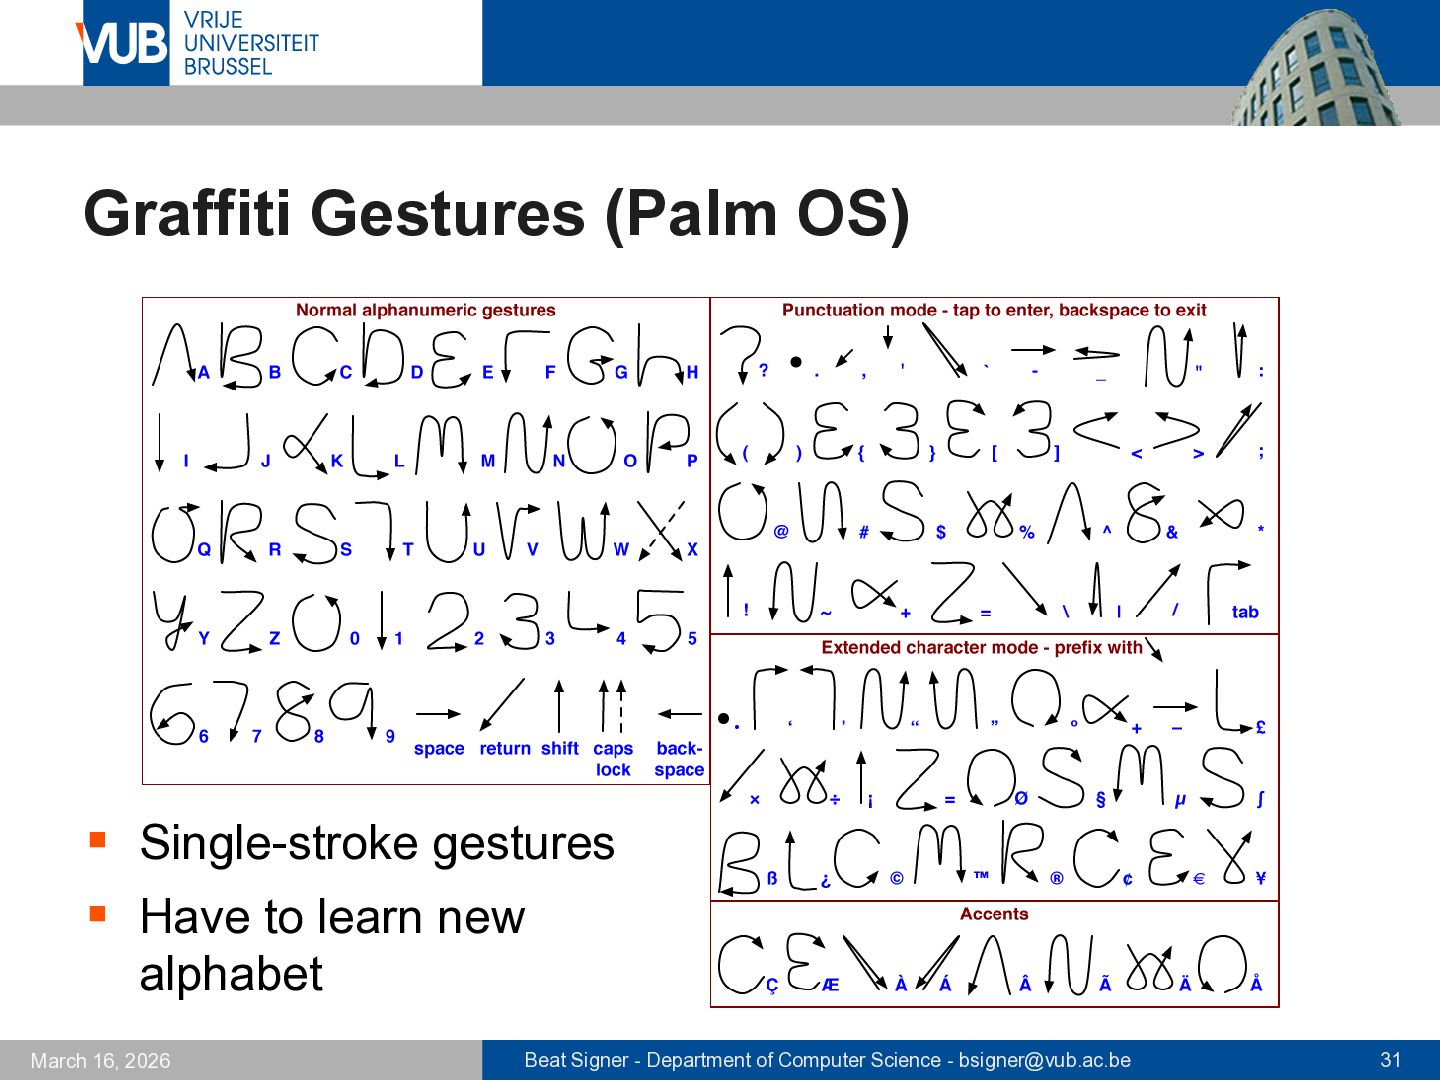 VUB
VRIJE
UNIVERSITEIT
BRUSSEL
Graffiti Gestures (Palm OS)
Normal alphanumeric gestures
A B C D E F G H
I J K L M N O P
Q R S T U V W X
Y Z 0 1 2 3 4 5
6 7 8 9 space return shift caps lock back-space
Punctuation mode - tap to enter, backspace to exit
? . , ' ` - _ " :
( ) { } [ ] < > ;
@ # $ % ^ & *
! ~ + = \ | / tab
Extended character mode - prefix with
• ‘ ’ “ ” º + – £
× ÷ ¡ = Ø § µ ∫
ß ¿ © ™ ® ¢ € ¥
Accents
Ç Æ À Á Â Ã Ä Å
Single-stroke gestures
Have to learn new
alphabet
March 16, 2026
Beat Signer - Department of Computer Science - bsigner@vub.ac.be
31